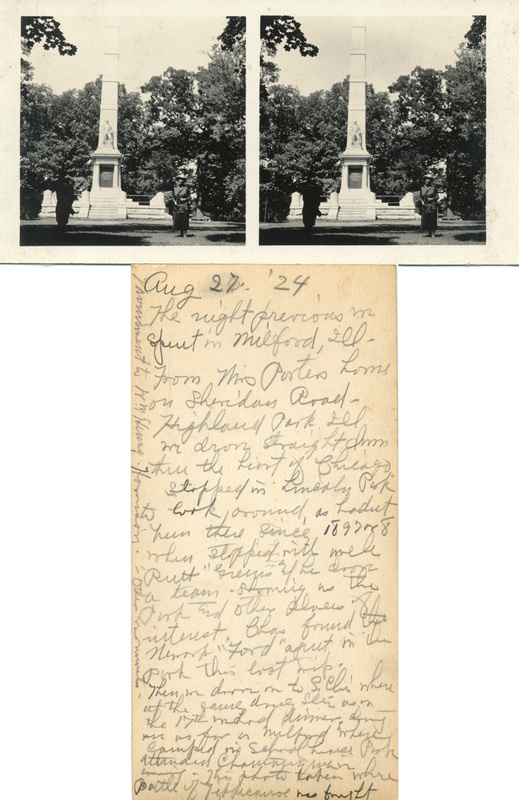 Aug 27 - '24
The night previous we
spent in Milford, Ill -
From Mrs Porters home
on Sheridan Road -
Highland Park Ill
we drove straight down
thru the heart of Chicago
stopped in Lincoln Park
to look around, as hadnt
been there since 1897 or 8
when stopped with
Rutt & he drove
a team - showing us the
Park and other places of
interest Chas found the
Newark "Ford" agent in the
park this last
Then we drove on to S. Chi where
at the same
the 17th we had dinner,
as far as Milford where
camped in School house Park
attended Chautauqua
This photo taken where
Battle of Tippecanoe was fought
monument to Wm Henry Harrison -